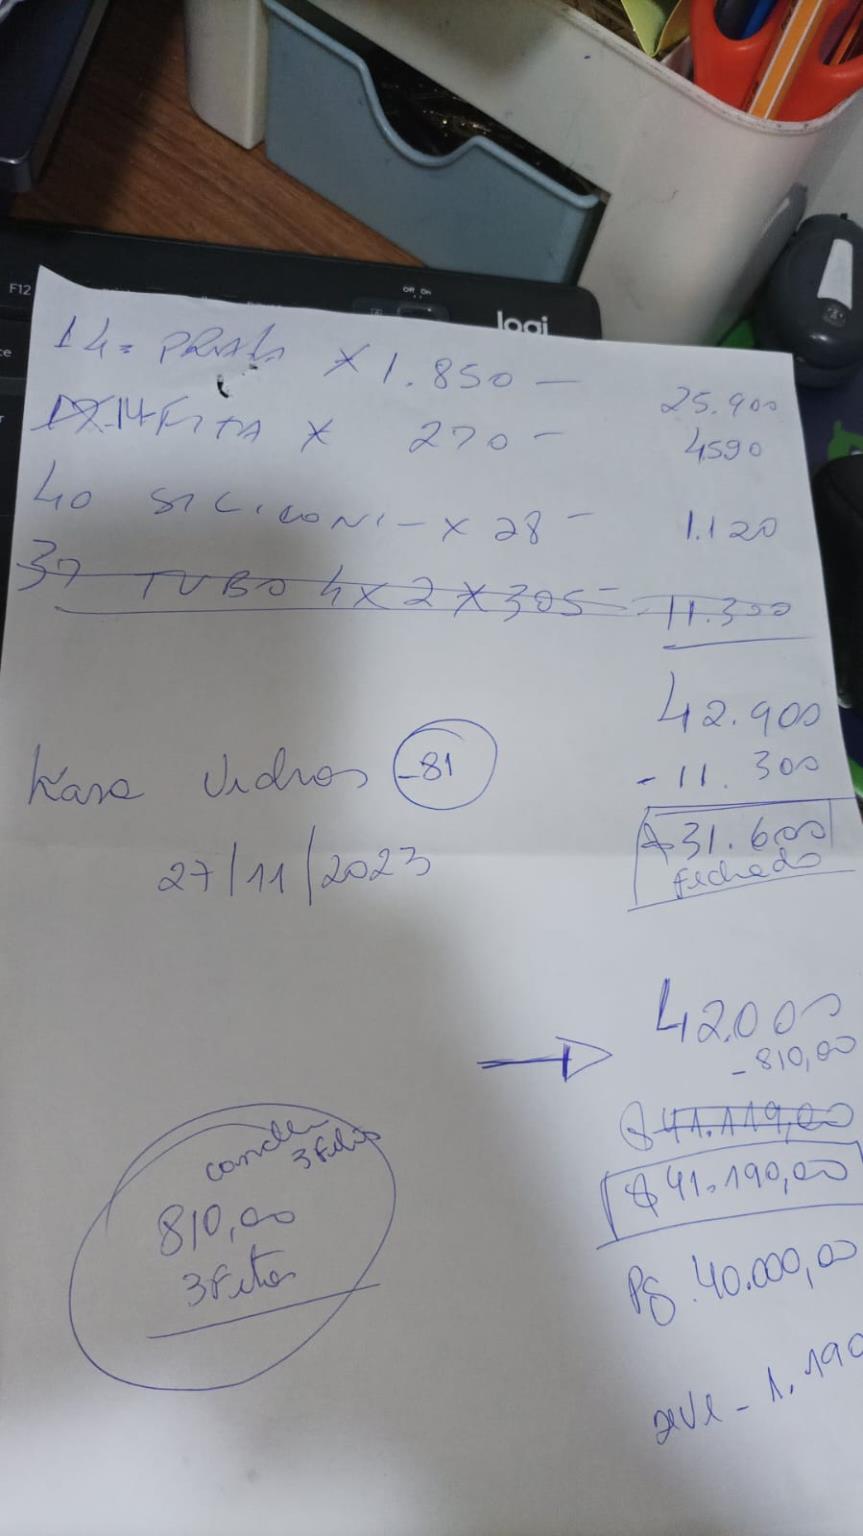 F12
OFF On
logi
14 = PRATA × 1.850 — 25.900
17 14 FITA × 270 — 4590
40 SILICONI — × 28 — 1.120
37 TUBO 4 × 2 × 305 — 11.300
42.900
- 11.300
Kasa Vidros -81
$31.600
Fechado
27/11/2023
42.000
- 810,00
$ 41.119,00
$ 41.190,00
3 Fitas
810,00
3 Fitas
Pg. 40.000,00
deve - 1.190